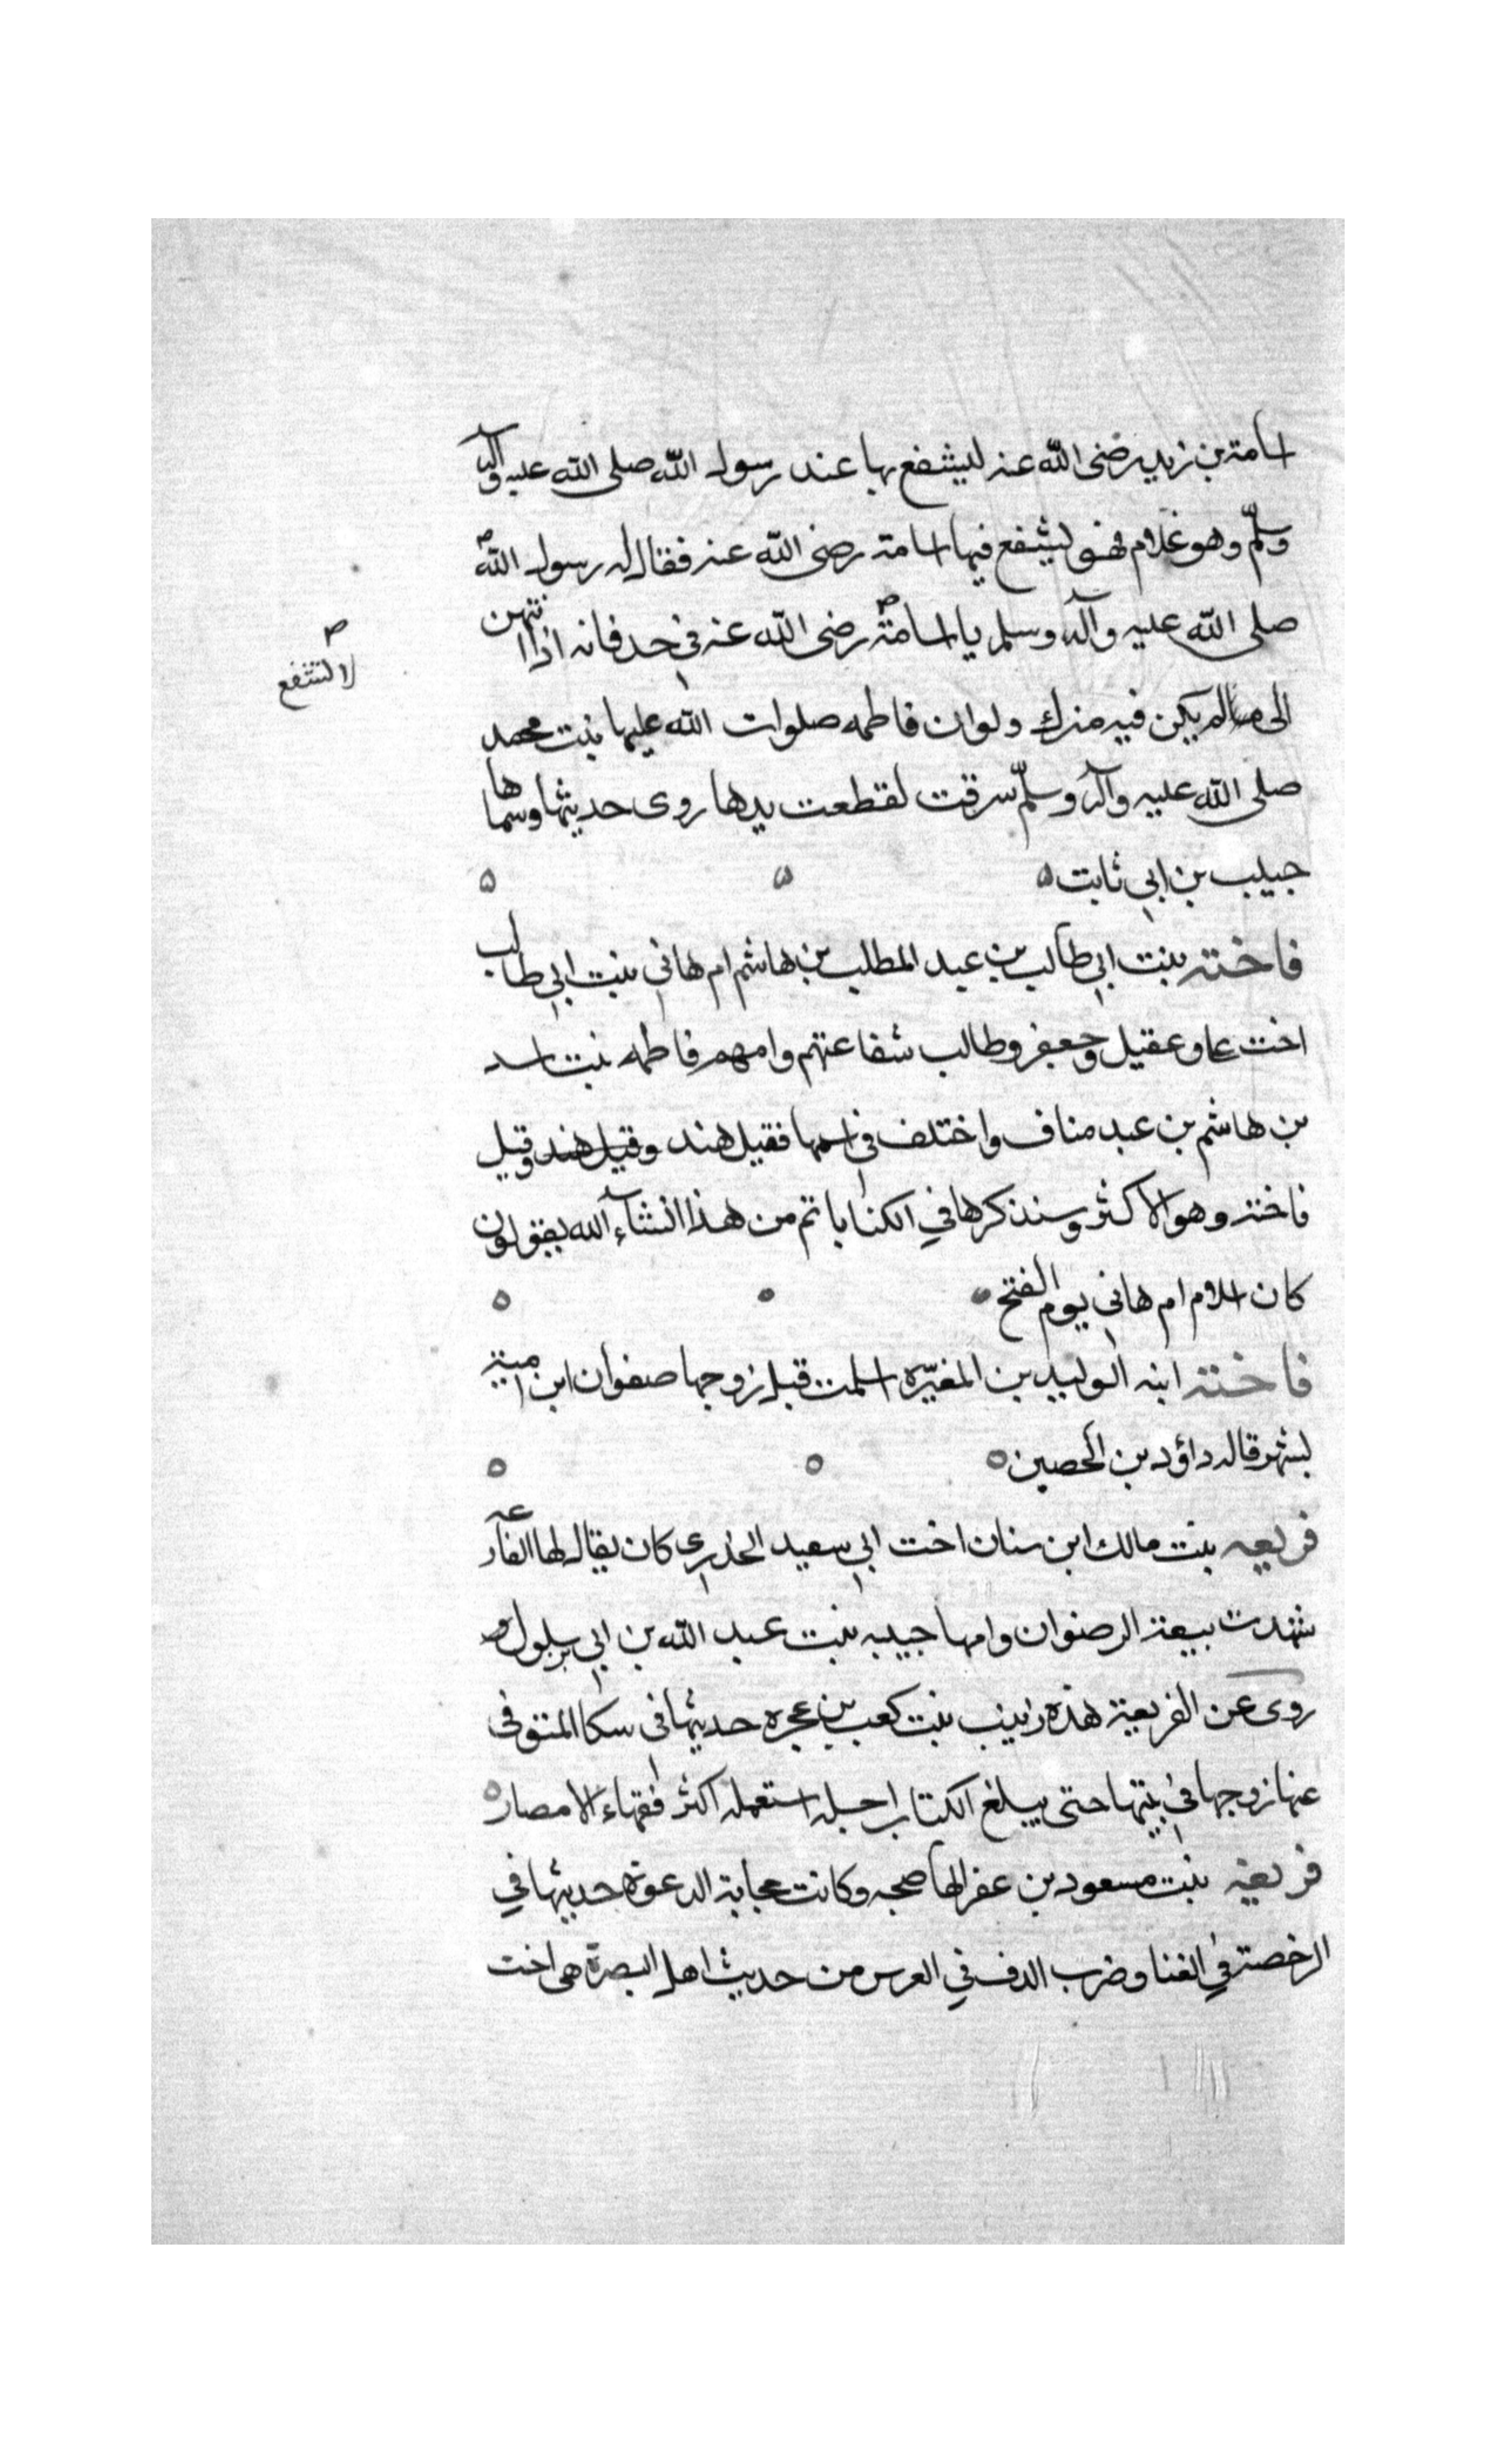 اسامة بن زيد رضى الله عنه ليشفع بها عند رسول الله صلى الله عليه وآله
وسلّم وهو غلام فهو ليشفع فيها اسامة رضى الله عنه فقال له رسول الله
صلى الله عليه وآله وسلم يا اسامة رضى الله عنه في حد فانه اذا انتهن
لا لتشفع
الى مالم يكن فيه منرك ولو ان فاطمه صلوات الله عليها بنت محمد
صلى الله عليه وآله وسلّم سرقت لقطعت يدها روى حديثها وسماها
حبيب بن ابي ثابت ه ه ه
فاخته بنت ابي طالب بن عبد المطلب بن هاشم ام هاني بنت ابي طالب
اخت على وعقيل وجعفر وطالب شفاعتهم وامهم فاطمه بنت اسد
بن هاشم بن عبد مناف واختلف في اسمها فقيل هند وقيل هند وقيل
فاخته وهو الاكثر وسنذكرها في الكنا باتم من هذا انشاء الله يقولون
كان اسلام ام هاني يوم الفتح
فاخته ابنه الوليد بن المغيّره اسلمت قبل زوجها صفوان ابن امية
بشهر قاله داؤد بن الحصين ه ه ه
فريعه بنت مالك ابن سنان اخت ابي سعيد الخدري كان يقال لها الفارعه
شهدت بيعة الرضوان وامها حبيبه بنت عبد الله بن ابي بن سلول
روى عن الفريعية هذه زينب بنت كعب بن عجره حديثها في سكنا المتوفى
عنها زوجها في بيتها حتى يبلغ الكتاب اجله استعمله اكثر فقهاء الامصار ه
فريعة بنت مسعود بن عفرا لها صحبه وكانت مجابة الدعوة حديثها في
الرخصة في الغنا وضرب الدف في العرس من حديث اهل البصرة هى اخت